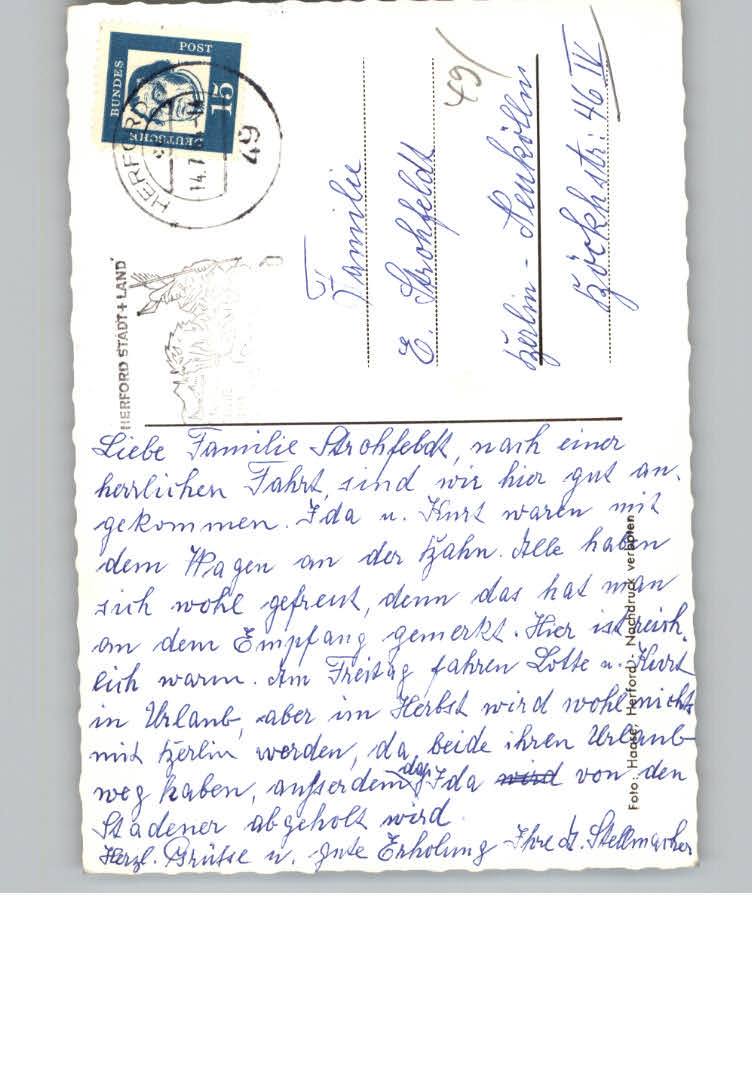 DEUTSCHE
BUNDES
POST
15
HERFORD
14.7
49
HERFORD STADT+LAND
49/
Familie
E. Strohfeldt
Berlin - Neukölln
Böckhstr: 46 IV
Liebe Familie Strohfeldt, nach einer
herrlichen Fahrt, sind wir hier gut an-
gekommen. Ida u. Kurt waren mit
dem Wagen an der Bahn. Alle haben
sich wohl gefreut, denn das hat man
an dem Empfang gemerkt. Hier ist reich-
lich warm. Am Freitag fahren Lotte u. Kurt
in Urlaub, aber im Herbst wird wohl nichts
mit Berlin werden, da beide ihren Urlaub
weg haben, außerdem da Ida wird von den
Stadener abgeholt wird.
Herzl. Grüsse u. gute Erholung Ihre A. Stellmacher
Foto: Haase, Herford - Nachdruck verboten